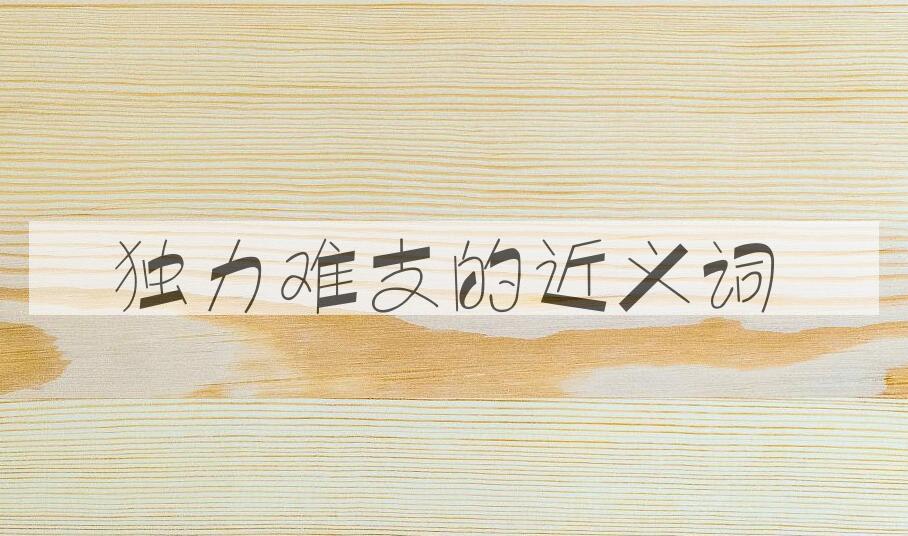 独力难支的近义词